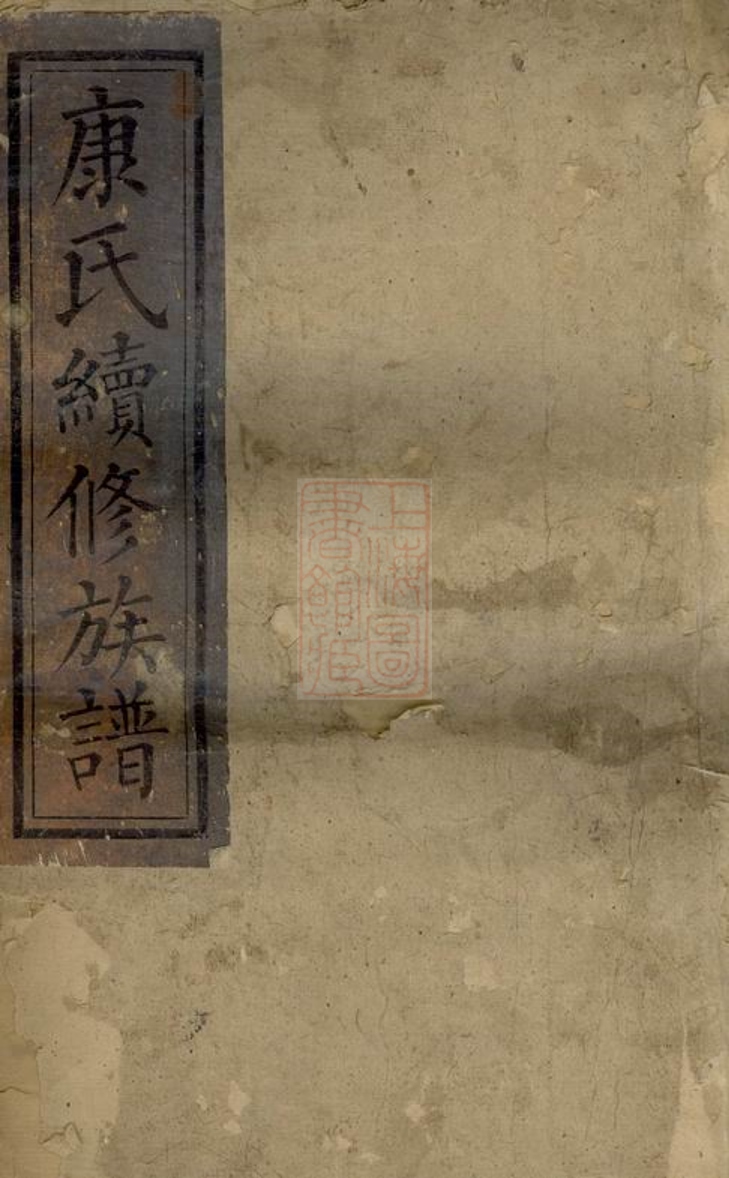 康氏續修族譜
上海圖
書館藏